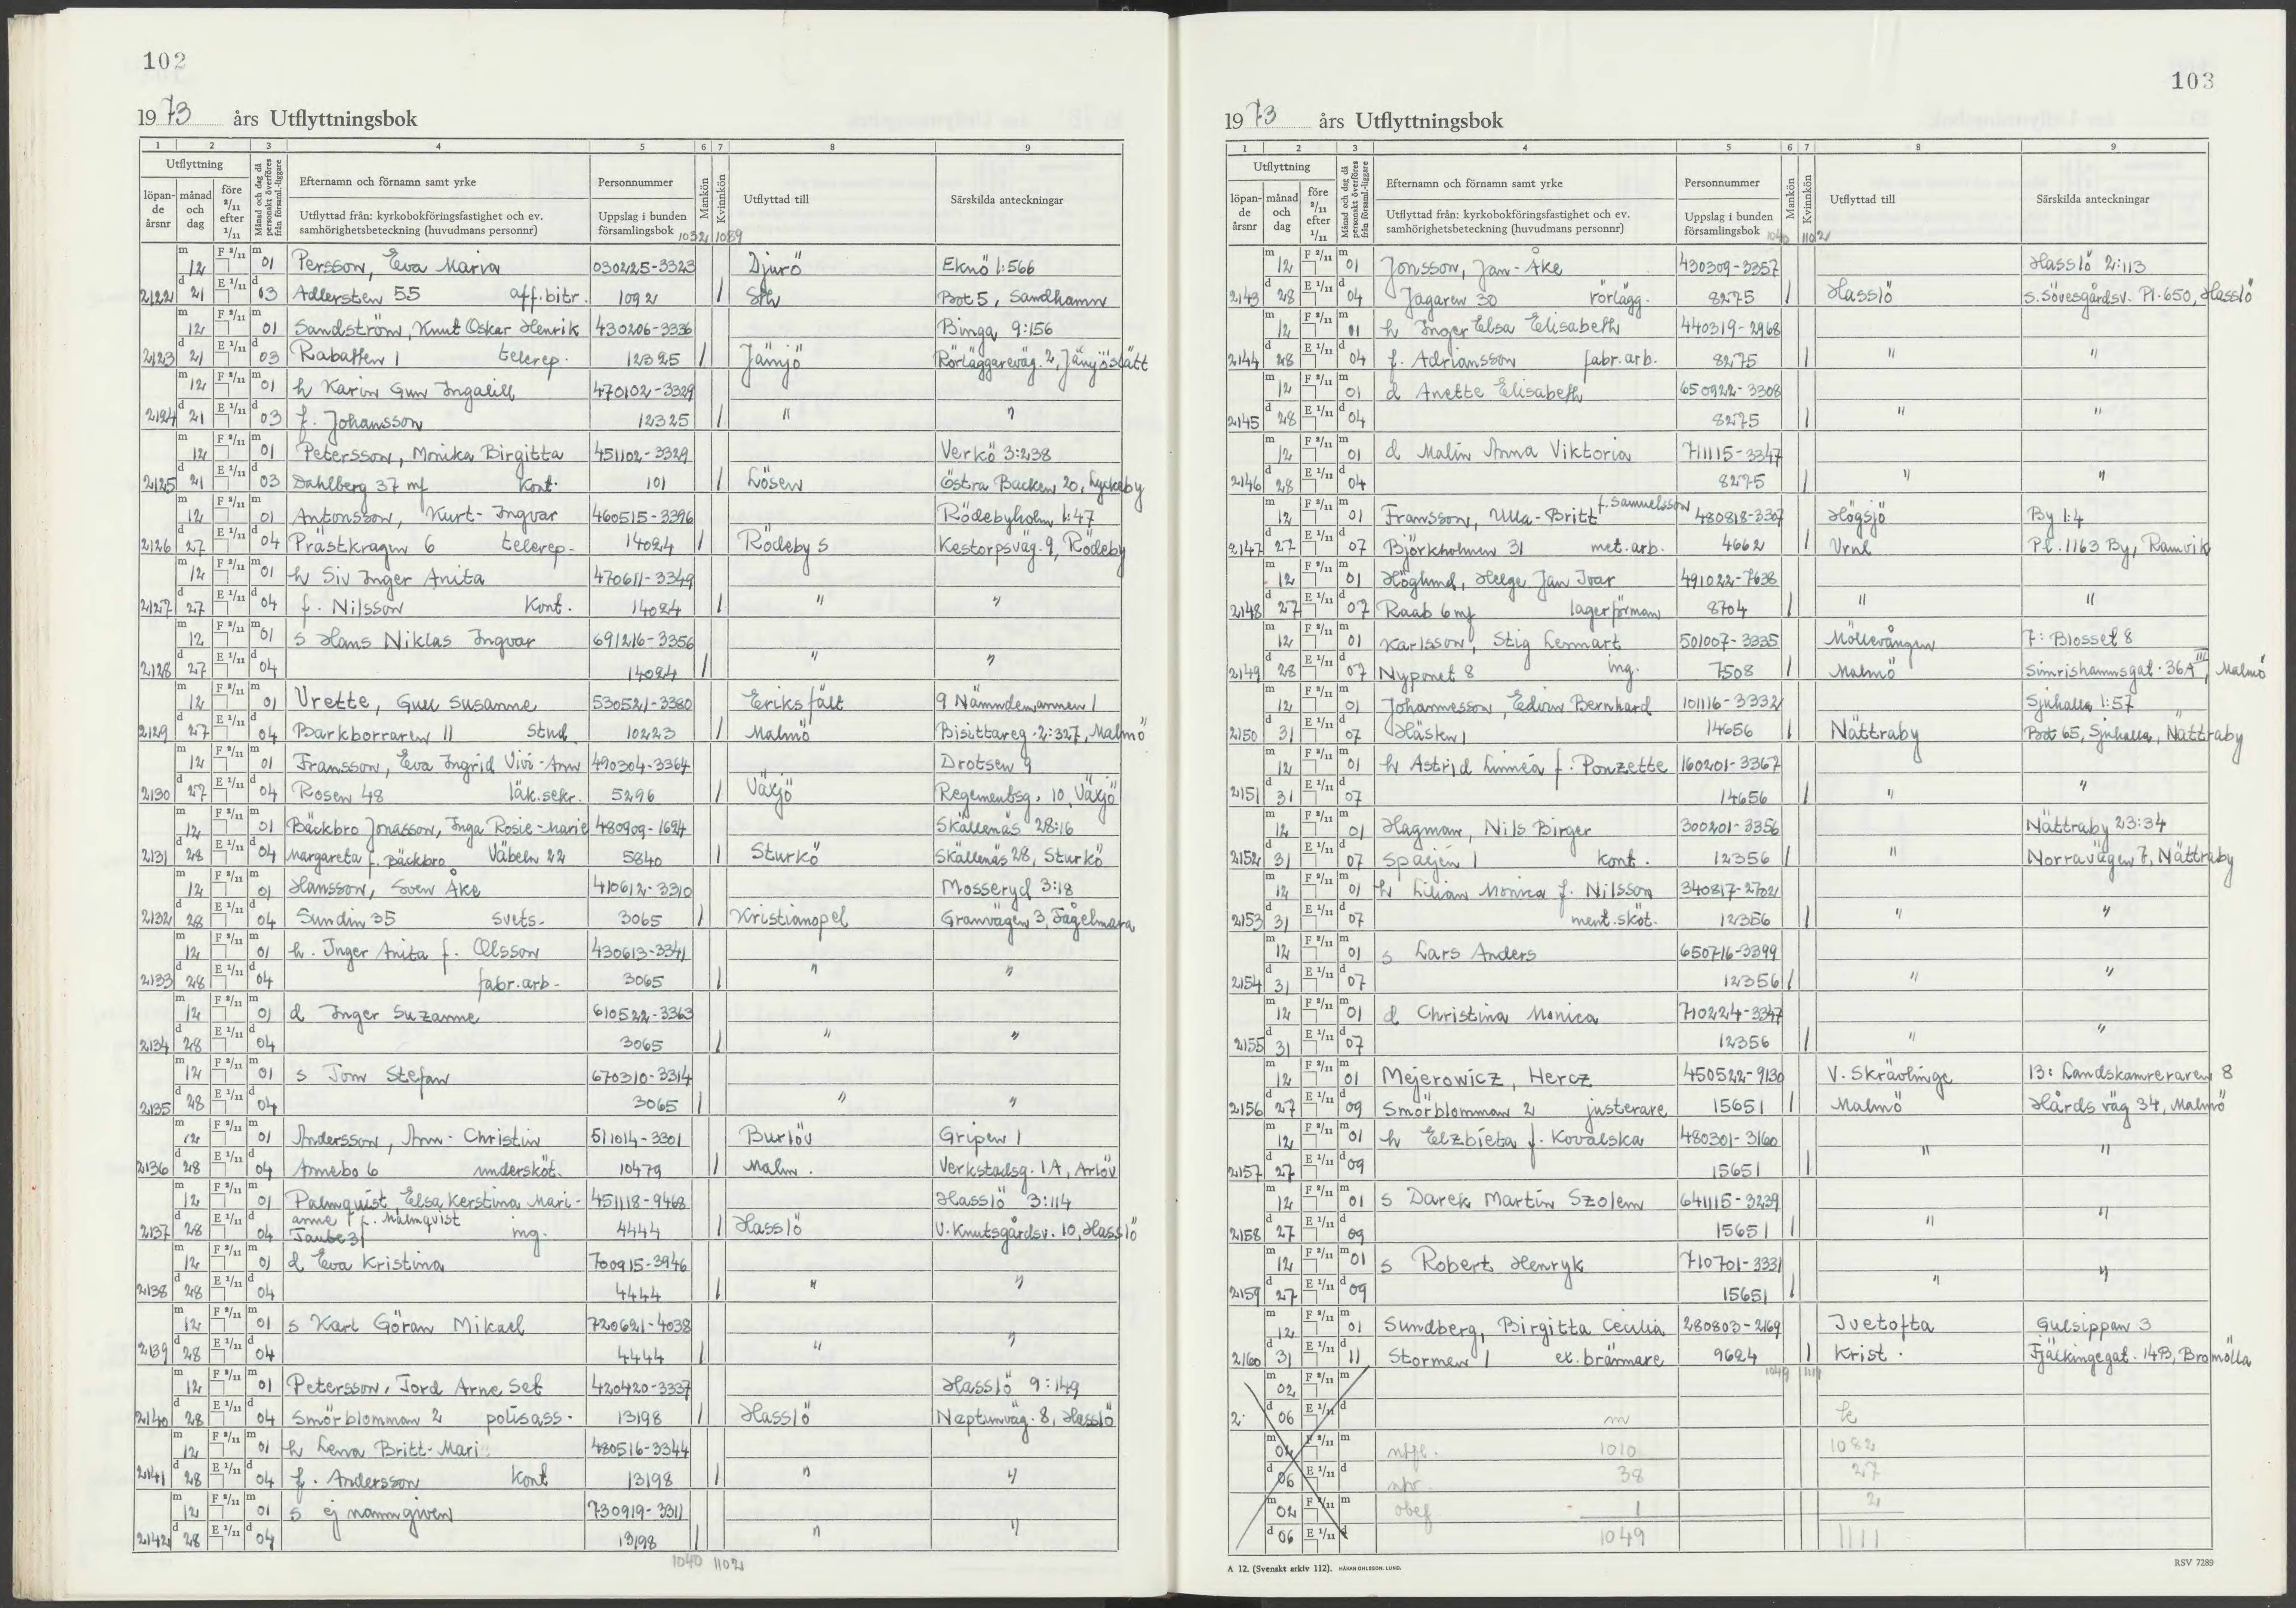 102
1973 års Utflyttningsbok
1 2 3 4 5 6 7 8 9
Utflyttning
löpande årsnr
månad och dag
före 2/11 efter 1/11
Månad och dag då personakt överföres från församl.-liggare
Efternamn och förnamn samt yrke
Utflyttad från: kyrkobokföringsfastighet och ev. samhörighetsbeteckning (huvudmans personnr)
Personnummer
Uppslag i bunden församlingsbok
Mankön
Kvinnkön
Utflyttad till
Särskilda anteckningar
1032 1089
12 01 Persson, Eva Maria 030225-3323 Djurö Eknö 1:566
2122 21 03 Adlersten 55 aff.bitr. 1092 1 Sth Box 5, Sandhamn
12 01 Sandström, Knut Oskar Henrik 430206-3336 Binga 9:156
2123 21 03 Rabatten 1 telerep. 12325 1 Jämjö Rörläggareväg. 2, Jämjöslätt
12 01 h Karin Gun Ingalill 470102-3329
2124 21 03 f. Johansson 12325 1 " "
12 01 Petersson, Monika Birgitta 451102-3329 Verkö 3:238
2125 21 03 Dahlberg 37 mf Kont. 101 1 Lösen Östra Backen 20, Lyckeby
12 01 Antonsson, Kurt-Ingvar 460515-3396 Rödebyholm 1:47
2126 27 04 Prästkragen 6 telerep. 14024 1 Rödeby S Kestorpsväg. 9, Rödeby
12 01 h Siv Inger Anita 470611-3349
2127 27 04 f. Nilsson Kont. 14024 1 " "
12 01 s Hans Niklas Ingvar 691216-3356
2128 27 04 14024 1 " "
12 01 Vrette, Gull Susanne 530521-3380 Eriksfält 9 Nämndemannen 1
2129 27 04 Barkborraren 11 Stud. 10223 1 Malmö Bisittareg. 2:327, Malmö
12 01 Fransson, Eva Ingrid Vivi-Ann 490304-3364 Drotsen 9
2130 27 04 Rosen 48 läk.sekr. 5296 1 Växjö Regementsg. 10, Växjö
12 01 Bäckbro Jonasson, Inga Rosie-Marie 480909-1624 Skällenäs 28:16
2131 28 04 Margareta f. Bäckbro Väbeln 22 5840 1 Sturkö Skällenäs 28, Sturkö
12 01 Hansson, Sven Åke 410612-3310 Mosseryd 3:18
2132 28 04 Sundin 35 svets. 3065 1 Kristianopel Granvägen 3, Fågelmara
12 01 h. Inger Anita f. Olsson 430613-3341
2133 28 04 fabr.arb. 3065 1 " "
12 01 d Inger Suzanne 610522-3363
2134 28 04 3065 1 " "
12 01 s Tom Stefan 670310-3314
2135 28 04 3065 1 " "
12 01 Andersson, Ann-Christin 511014-3301 Burlöv Gripen 1
2136 28 04 Annebo 6 undersköt. 10479 1 Malm. Verkstadsg. 1A, Arlöv
12 01 Palmquist, Elsa Kerstina Mari- 451118-9468 Hasslö 3:114
anne f. Malmquist
2137 28 04 Taube 31 ing. 4444 1 Hasslö V. Knutsgårdsv. 10, Hasslö
12 01 d Eva Kristina 700915-3946
2138 28 04 4444 1 " "
12 01 s Karl Göran Mikael 720621-4038
2139 28 04 4444 1 " "
12 01 Petersson, Tord Arne Set 420420-3337 Hasslö 9:149
2140 28 04 Smörblomman 2 polisass. 13198 1 Hasslö Neptunväg. 8, Hasslö
12 01 h Lena Britt-Mari 480516-3344
2141 28 04 f. Andersson Kont 13198 1 " "
12 01 s ej namngiven 730919-3311
2142 28 04 13198 1 " "
1040 1102
103
1973 års Utflyttningsbok
1 2 3 4 5 6 7 8 9
Utflyttning
löpande årsnr
månad och dag
före 2/11 efter 1/11
Månad och dag då personakt överföres från församl.-liggare
Efternamn och förnamn samt yrke
Utflyttad från: kyrkobokföringsfastighet och ev. samhörighetsbeteckning (huvudmans personnr)
Personnummer
Uppslag i bunden församlingsbok
Mankön
Kvinnkön
Utflyttad till
Särskilda anteckningar
1040 1102
12 01 Jonsson, Jan-Åke 430309-3357 Hasslö 2:113
2143 28 04 Jagaren 30 rörlägg. 8275 1 Hasslö S. Sövesgårdsv. Pl. 650, Hasslö
12 01 h Inger Elsa Elisabeth 440319-2968
2144 28 04 f. Adriansson fabr.arb. 8275 1 " "
12 01 d Anette Elisabeth 650922-3308
2145 28 04 8275 1 " "
12 01 d Malin Anna Viktoria 711115-3347
2146 28 04 8275 1 " "
12 01 Fransson, Ulla-Britt f. Samuelsson 480818-3307 Högsjö By 1:4
2147 27 07 Björkholmen 31 met.arb. 4662 1 Vrnl Pl. 1163 By, Ramvik
12 01 Höglund, Helge Jan Ivar 491022-7638
2148 27 07 Raab 6 mf lagerförman 8704 1 " "
12 01 Karlsson, Stig Lennart 501007-3335 Möllevången 7: Blosset 8
2149 28 07 Nyponet 8 ing. 7508 1 Malmö Simrishamnsgat. 36A III, Malmö
12 01 Johannesson, Edvin Bernhard 101116-3332 Sjuhalla 1:57
2150 31 07 Hästen 1 14656 1 Nättraby Box 65, Sjuhalla, Nättraby
12 01 h Astrid Linnéa f. Ponzette 160201-3367
2151 31 07 14656 1 " "
12 01 Hagman, Nils Birger 300201-3356 Nättraby 23:34
2152 31 07 Spaljén 1 kont. 12356 1 " Norravägen 7, Nättraby
12 01 h Lilian Monica f. Nilsson 340817-2702
2153 31 07 ment.sköt. 12356 1 " "
12 01 s Lars Anders 650716-3399
2154 31 07 12356 1 " "
12 01 d Christina Monica 710224-3347
2155 31 07 12356 1 " "
12 01 Mejerowicz, Hercz 450522-9130 V. Skrävlinge 13: Landskamreraren 8
2156 27 09 Smörblomman 2 justerare 15651 1 Malmö Hårds väg 34, Malmö
12 01 h Elzbieta f. Kovalska 480301-3160
2157 27 09 15651 1 " "
12 01 s Darek Martin Szolem 641115-3239
2158 27 09 15651 1 " "
12 01 s Robert Henryk 710701-3331
2159 27 09 15651 1 " "
12 01 Sundberg, Birgitta Cecilia 280803-2169 Ivetofta Gulsippan 3
2160 31 11 Stormen 1 ex. brännare 9624 1 Krist. Fjälkingegat. 14B, Bromölla
1049 1111
02
2 06 m k
02 utfl. 1010 1082
06 38 27
02 obef 1 2
06 1049 1111
A 12. (Svenskt arkiv 112). HÅKAN OHLSSON. LUND.
RSV 7289